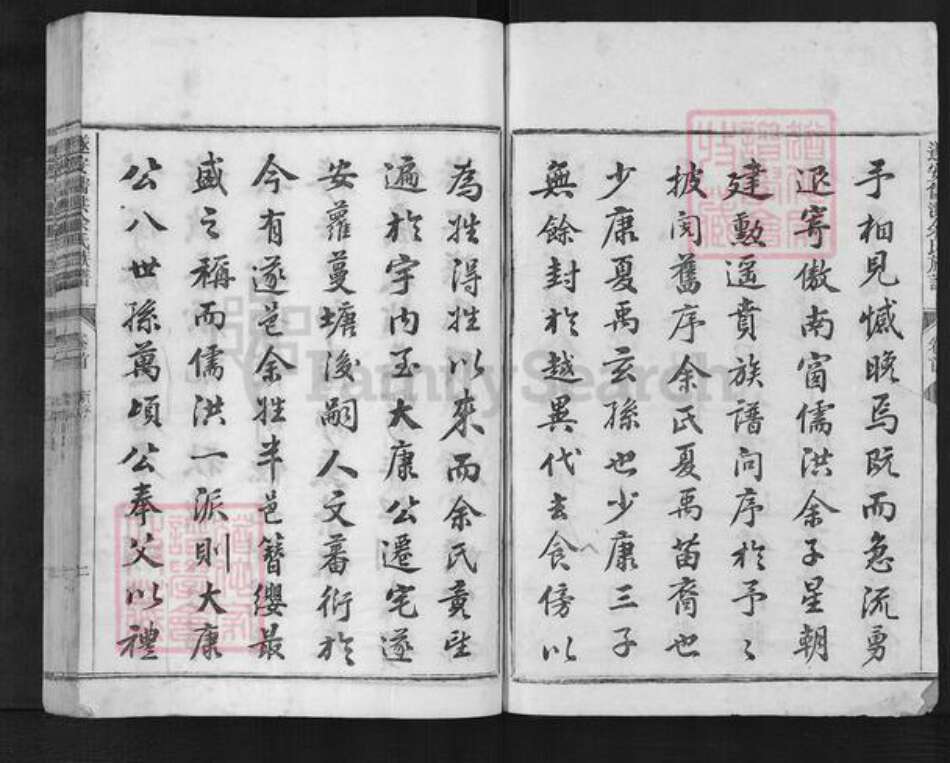 予相見憾晚焉既而急流勇
退寄傲南窗儒洪余子星朝
建勳遥賁族譜問序於予〻
披閱舊序余氏夏禹苗裔也
少康夏禹玄孫也少康三子
無餘封於越異代去食傍以
為姓得姓以來而余氏貴
遍於宇內至大康公遷宅遂
安蘿蔓塘後嗣人文蕃衍於
今有遂邑余姓半邑簪纓最
盛之稱而儒洪一派則大康
公八世孫萬頃公奉父以禮
FamilySearch